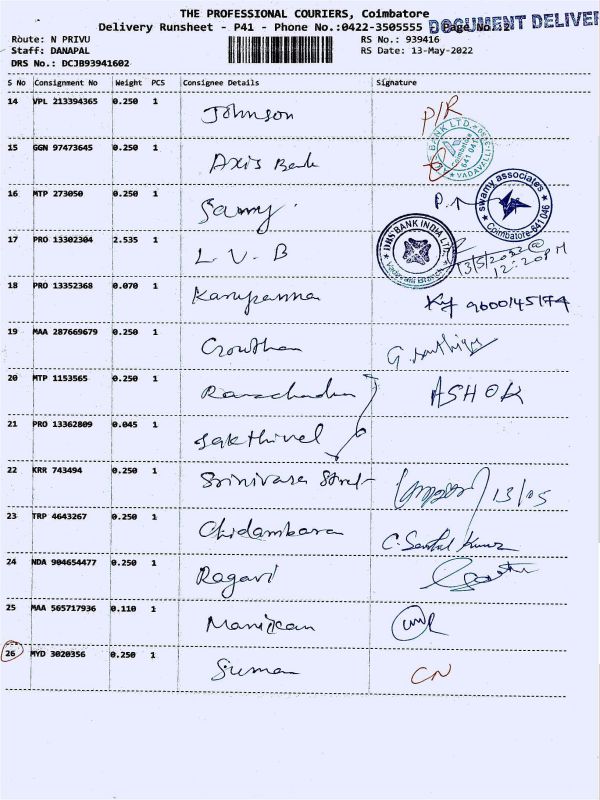 THE PROFESSIONAL COURIERS, Coimbatore
Delivery Runsheet - P41 - Phone No.:0422-3505555 Page No.:2
DOCUMENT DELIVER
Route: N PRIVU RS No.: 939416
Staff: DANAPAL RS Date: 13-May-2022
DRS No.: DCJB93941602
S No Consignment No Weight PCS Consignee Details Signature
14 VPL 213394365 0.250 1 Johnson P/R
15 GGN 97473645 0.250 1 Axis Bank
BANK LTD. Coimbatore 641 041 VADAVALLI
16 MTP 273050 0.250 1 Samy.
swamy associates Coimbatore-641 046
17 PRO 13302304 2.535 1 L V B 13/5/2022@
12:20PM
DBS BANK INDIA LTD. Branch
18 PRO 13352368 0.070 1 9600145174
19 MAA 287669679 0.250 1 Gowtham
20 MTP 1153565 0.250 1 ASHOK
21 PRO 13362809 0.045 1 Sakthivel
22 KRR 743494 0.250 1 Srinivasa 13/05
23 TRP 4643267 0.250 1 Chidambara C. Senthil Kumar
24 NDA 904654477 0.250 1 Ragavi
25 MAA 565717936 0.110 1 Manikan
26 MYD 3020356 0.250 1 Suman CN